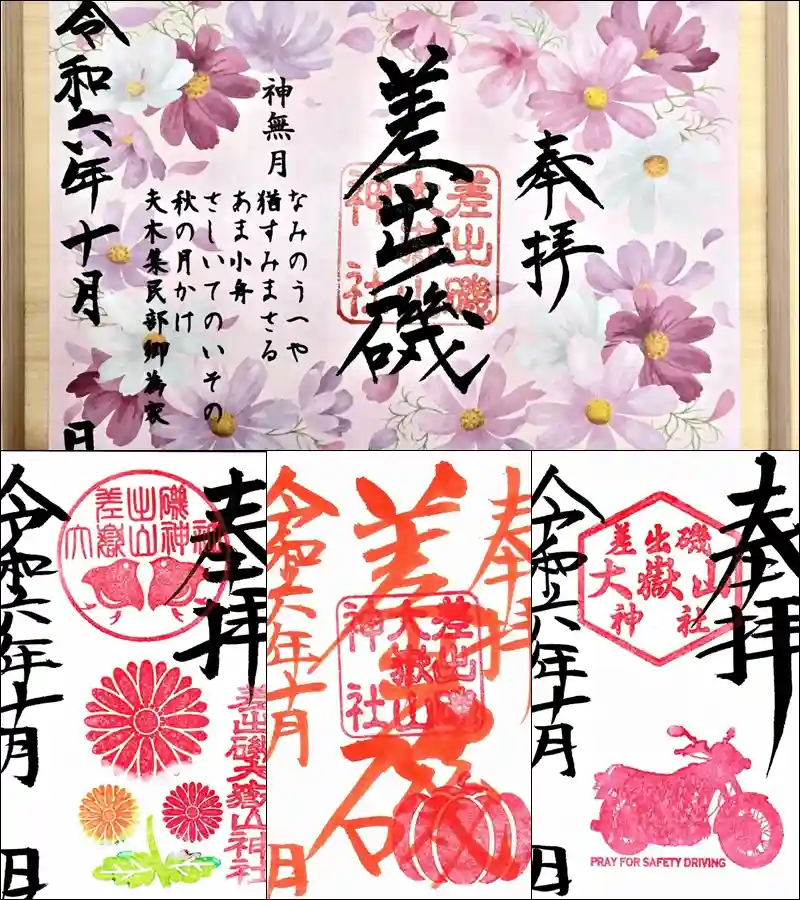 奉拝
差出磯
差出磯
大嶽山
神社
神無月
なみのうへや
猶すみまさる
あま小舟
さしいてのいその
秋の月かけ
夫木集民部卿為家
令和六年十月
日
奉拝
差出磯
大嶽山神社
差出磯大嶽山神社
令和六年十月
日
奉拝
差出磯
差出磯
大嶽山
神社
令和六年十月
日
奉拝
差出磯
大嶽山
神社
PRAY FOR SAFETY DRIVING
令和六年十月
日